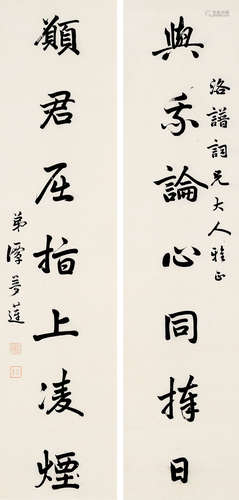 洛譜詞兄大人雅正
與我論心同捧日
願君屈指上凌煙
弟潭蓮